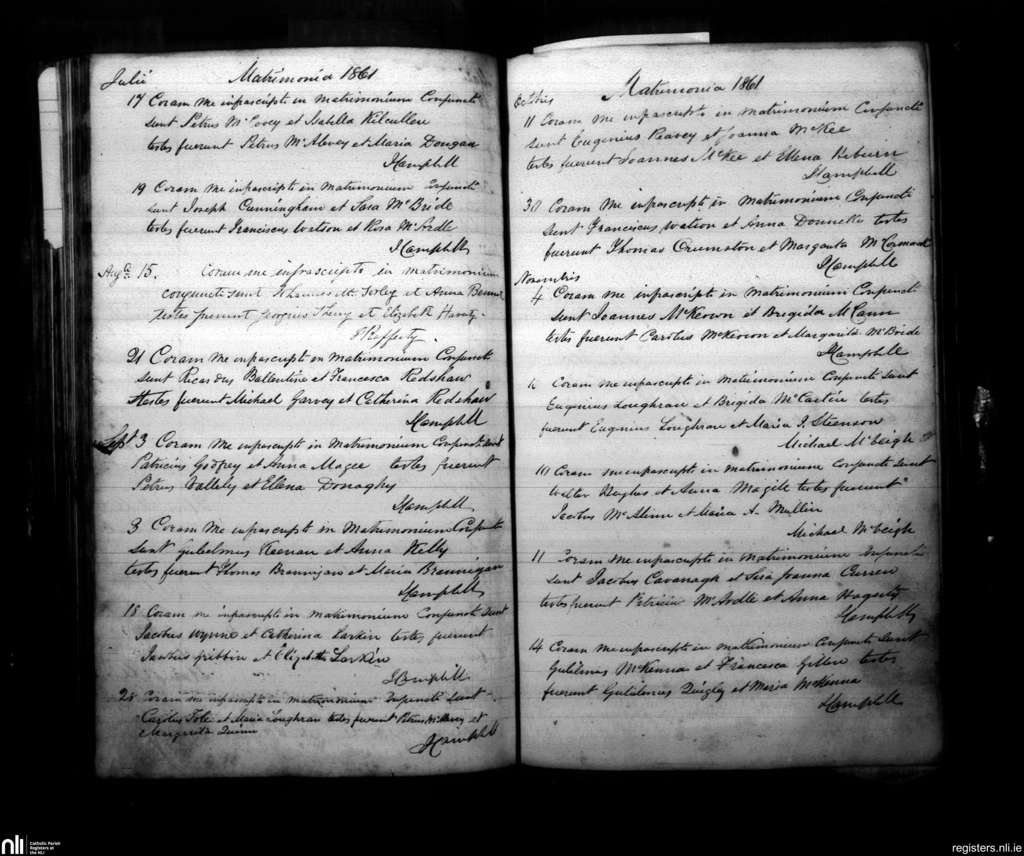 Julii Matrimonia 1861
17 Coram me infrascripti in matrimonium Conjuncti
sunt Petrus McCovey et Isabella Kilcullen
testes fuerunt Petrus McAlevey et Maria Dougan
JCampbell
19 Coram me infrascripti in matrimonium Conjuncti
sunt Joseph Cunningham et Sara McBride
testes fuerunt Franciscus Watson et Rosa McArdle
JCampbell
15. Coram me infrascripti in matrimonium
conjuncti sunt et Anna
testes fuerunt Georgius et Elizabeth
Rafferty.
21 Coram me infrascripti in matrimonium Conjuncti
sunt Ricardus Ballentine et Francesca Redshaw
testes fuerunt Michael Garvey et Catherina Redshaw
JCampbell
Sept 3 Coram me infrascripti in matrimonium Conjuncti sunt
Patricius Godfrey et Anna Magee testes fuerunt
Petrus Vallely et Ellena Donaghy
JCampbell
3 Coram me infrascripti in Matrimonium Conjuncti
sunt Gulielmus Keenan et Anna Kelly
testes fuerunt Thomas Brannigan et Maria Brannigan
JCampbell
18 Coram me infrascripti in matrimonium Conjuncti sunt
Jacobus Wynne et Catherina Larkin testes fuerunt
Gribbin et Elizabetha Larkin
JCampbell
28 Coram me infrascripti in matrimonium Conjuncti sunt
Carolus et Maria Loughran testes fuerunt Petrus et
Margarita Quinn
JCampbell
Octobris Matrimonia 1861
11 Coram me infrascripti in matrimonium Conjuncti
sunt Eugenius Peavey et Joanna McKee
testes fuerunt Joannes McKee et Ellena Reburn
JCampbell
30 Coram me infrascripti in matrimonium Conjuncti
sunt Franciscus Watson et Anna testes
fuerunt Thomas et Margarita McCormack
JCampbell
Novembris
4 Coram me infrascripti in matrimonium Conjuncti
sunt Joannes McKeown et Brigida McCann
testes fuerunt Carolus McKeown et Margarita McBride
JCampbell
Coram me infrascripti in matrimonium Conjuncti sunt
Eugenius Loughran et Brigida McCartin testes
fuerunt Eugenius Loughran et Maria J. Stienson
Michael McVeigh
10 Coram me infrascripti in matrimonium Conjuncti sunt
Walter Hughes et Anna Magill testes fuerunt
Jacobus McAlinn et Maria A. Mullin
Michael McVeigh
11 Coram me infrascripti in matrimonium Conjuncti
sunt Jacobus Cavanagh et Joanna Curren
testes fuerunt Patricius McArdle et Anna Hagerty
JCampbell
14 Coram me infrascripti in matrimonium Conjuncti sunt
Gulielmus McKenna et Francesca testes
fuerunt Gulielmus Quigley et Maria McKenna
JCampbell
nli Catholic Parish
Registers at
the NLI
registers.nli.ie